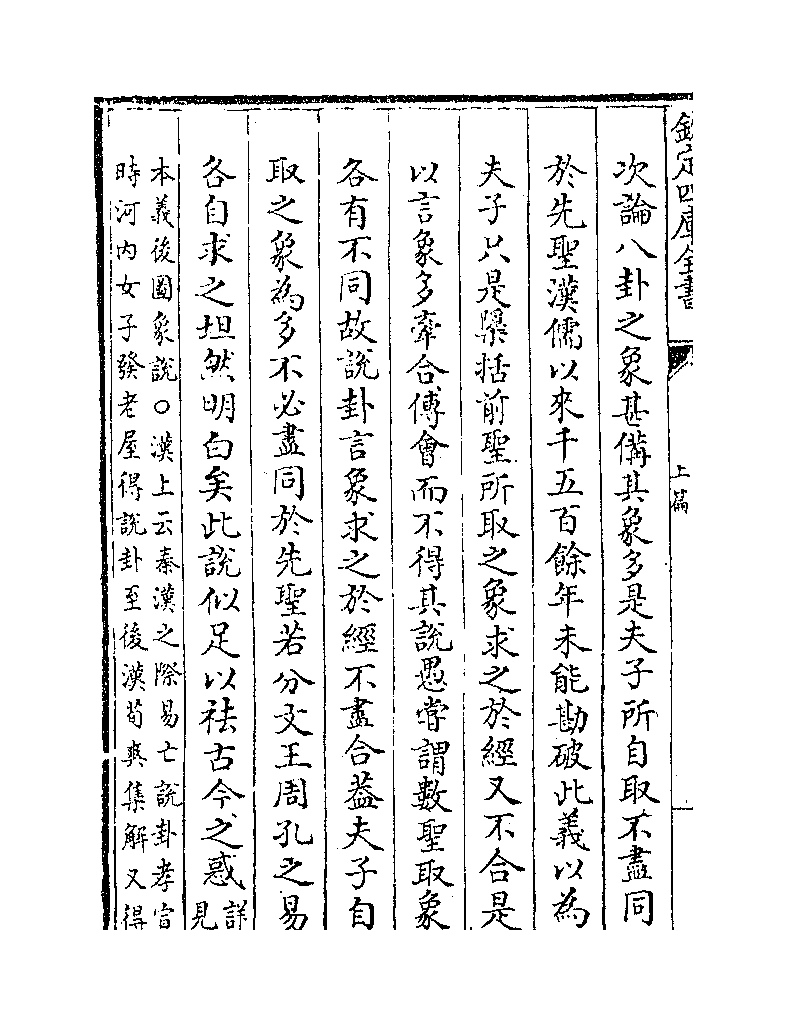 欽定四庫全書
上篇
次論八卦之象甚備其象多是夫子所自取不盡同
於先聖漢儒以來千五百餘年未能勘破此義以為
夫子只是檃括前聖所取之象求之於經又不合是
以言象多牽合傅會而不得其說愚嘗謂數聖取象
各有不同故說卦言象求之於經不盡合葢夫子自
取之象為多不必盡同於先聖若分文王周孔之易
各自求之坦然明白矣此說似足以祛古今之惑詳
見
本義後圖象說○漢上云秦漢之際易亡說卦孝宣
時河内女子發老屋得說卦至後漢荀爽集解又得